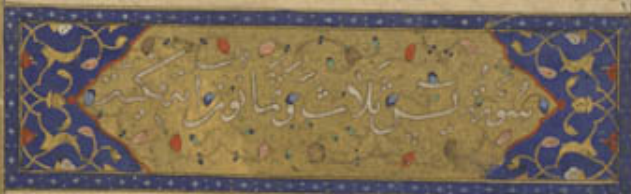 سورة يس ثلاث وثمانون اية مكية